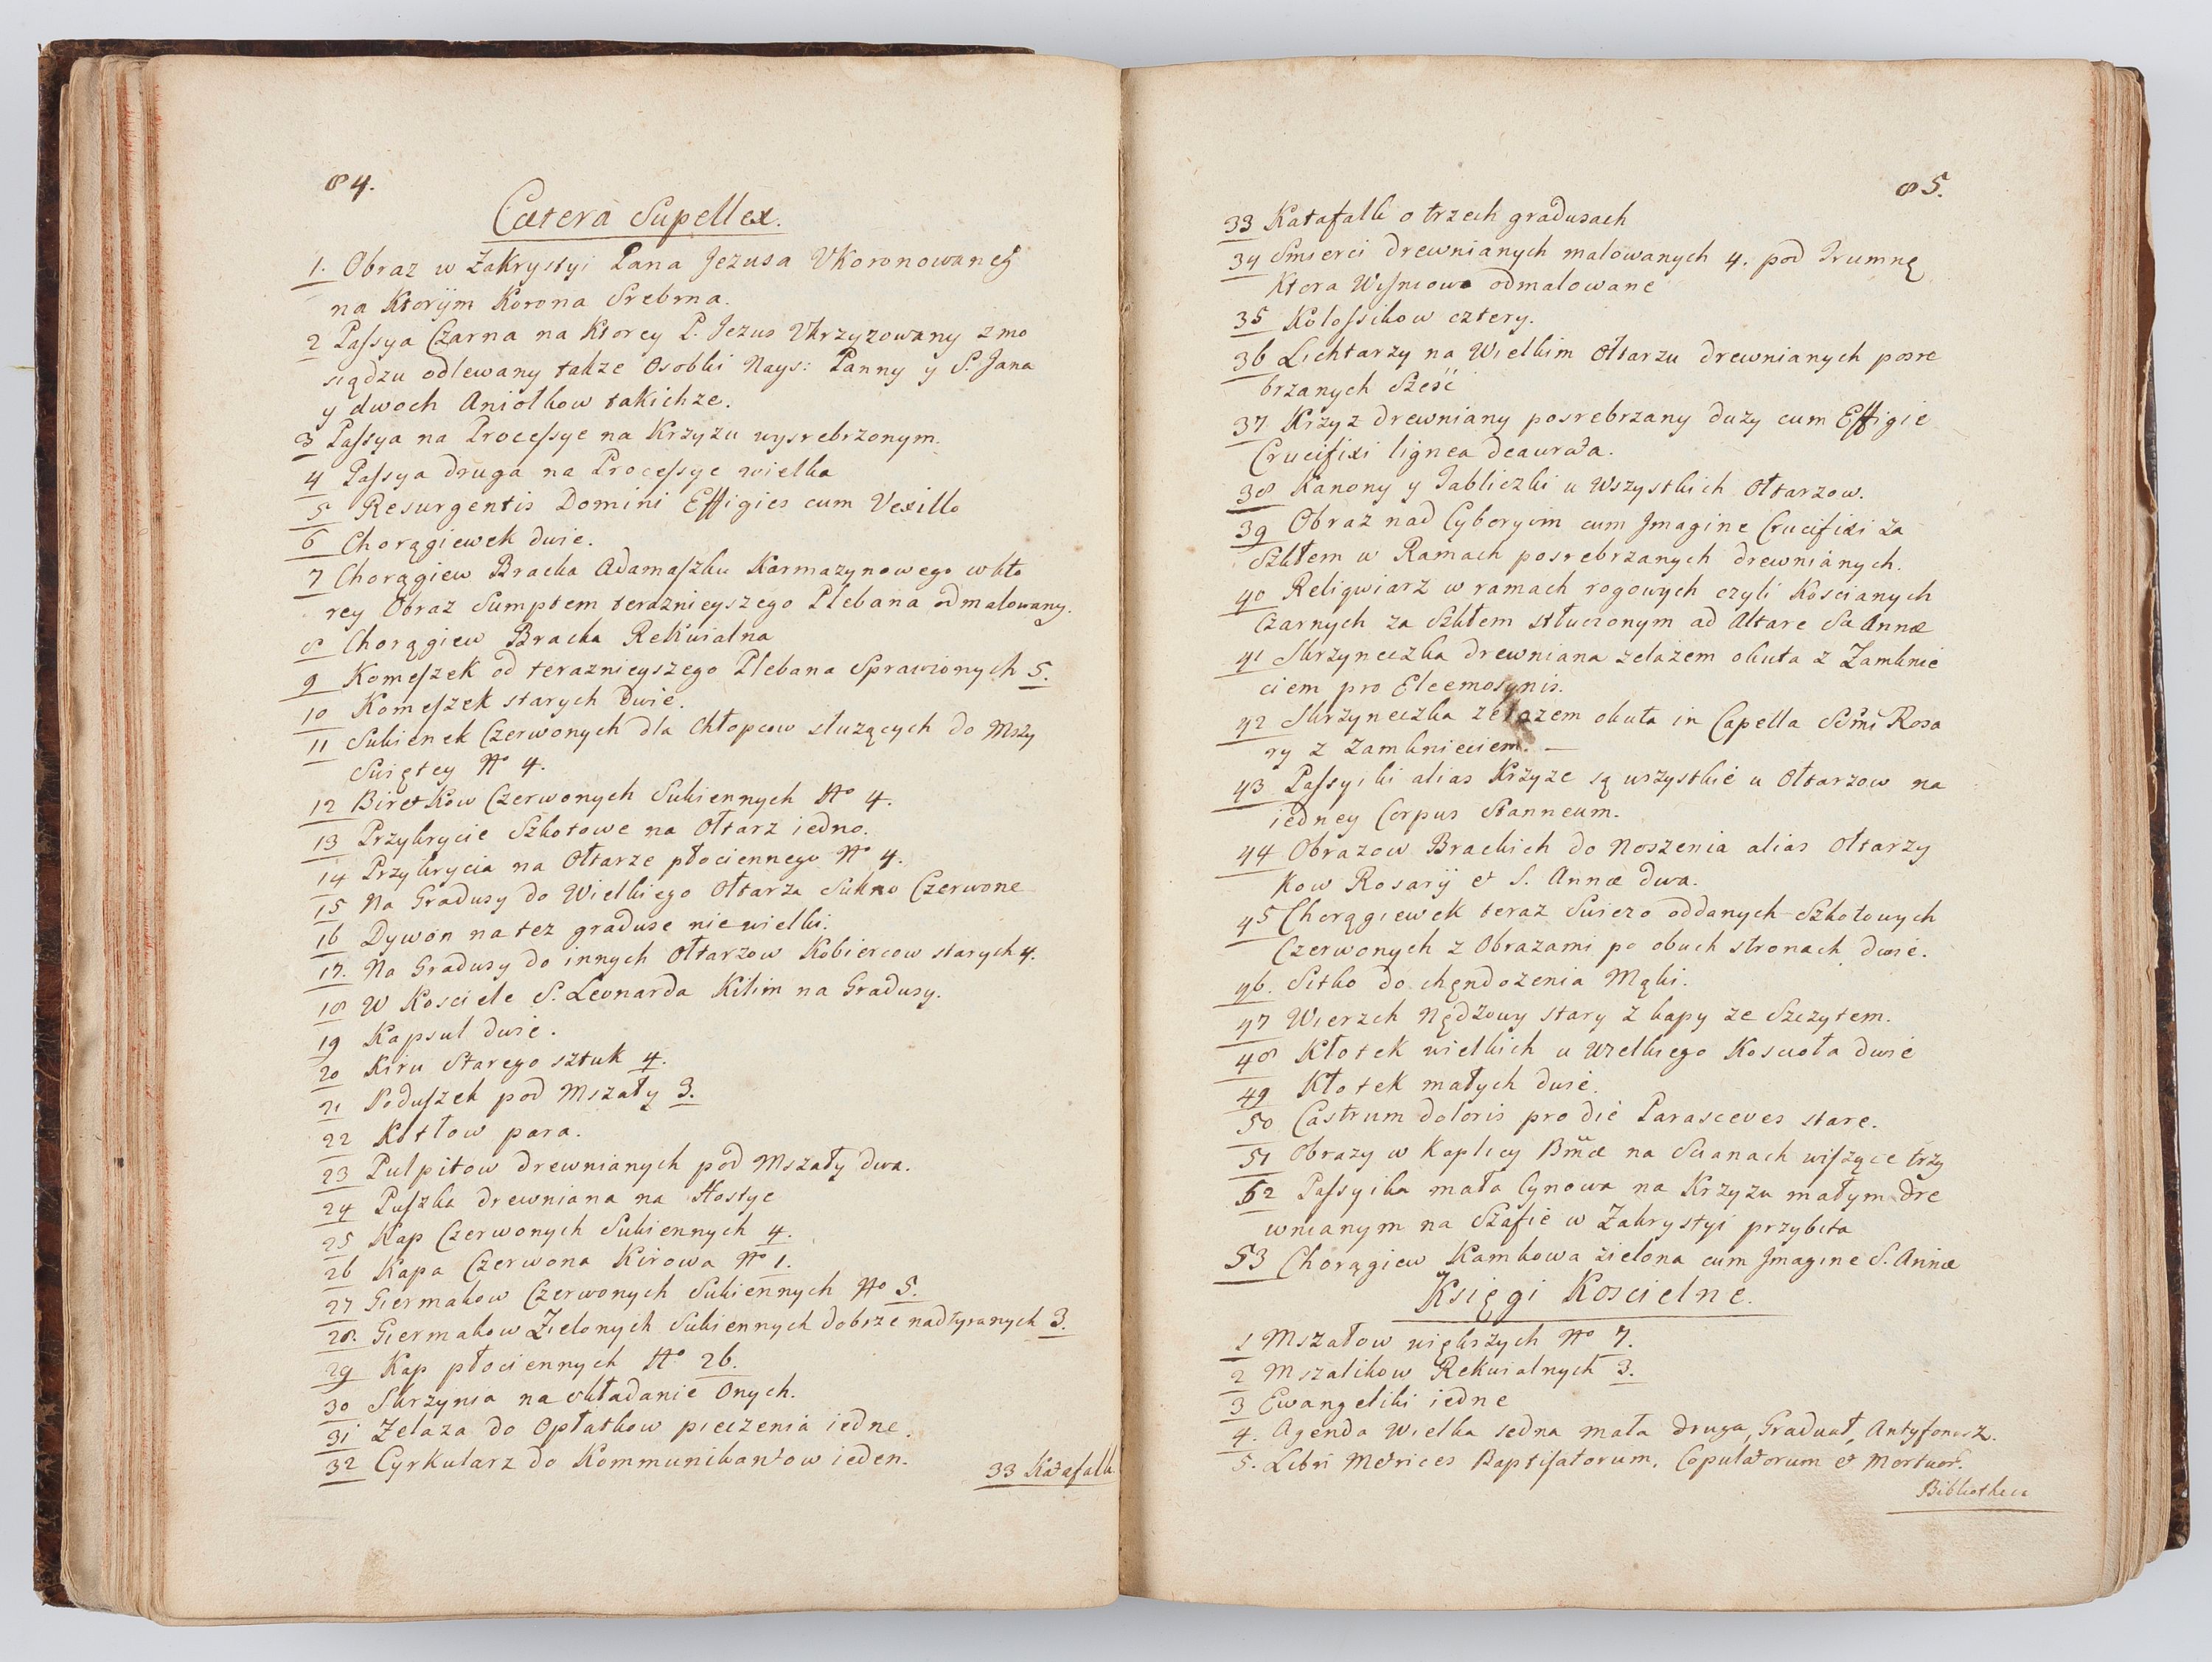 84.
Cætera Supellex.
1. Obraz w Zakrystyi Pana Jezusa Vkoronowaneg
na Ktorym Korona Srebrna.
2 Passya Czarna na Ktorey P. Jezus Vkrzyzowany z mo
siądzu odlewany takze Osobki Nays: Panny y S. Jana
y dwoch Aniołkow takichze.
3 Passya na Processye na Krzyzu wysrebrzonym.
4 Passya druga na Processye wielka
5 Resurgentis Domini Effigies cum Vexillo
6 Chorągiewek dwie.
7 Chorągiew Bracka Adamaszku Karmazynowego w kto
rey Obraz Sumptem teraznieyszego Plebana odmalowany.
8 Chorągiew Bracka Rekwialna
9 Komeszek od teraznieyszego Plebana Sprawionych 5.
10 Komeszek starych dwie.
11 Sukienek Czerwonych dla Chłopcow słuzących do Mszy
Swiętey No 4.
12 Biretkow Czerwonych Sukiennych No 4.
13 Przykrycie Szkotowe na Ołtarz iedno.
14 Przykrycia na Ołtarze płociennego No 4.
15 Na Gradusy do Wielkiego Ołtarza Sukno Czerwone
16 Dywon na tez graduse nie wielki.
17. Na Gradusy do innych Ołtarzow Kobiercow starych 4.
18 W Kosciele S. Leonarda Kilim na Gradusy.
19 Kapsul dwie.
20 Kiru Starego sztuk 4.
21 Poduszek pod Mszały 3.
22 Kotłow para.
23 Pulpitow drewnianych pod Mszały dwa.
24 Puszka drewniana na Hostye
25 Kap Czerwonych Sukiennych 4.
26 Kapa Czerwona Kirowa No 1.
27 Giermakow Czerwonych Sukiennych No 5.
28. Giermakow Zielonych Sukiennych dobrze nadłysanych 3.
29 Kap płociennych No 26.
30 Skrzynia na vkładanie Onych.
31 Zelaza do Opłatkow pieczenia iedne.
32 Cyrkularz do Kommunikantow ieden.
33 Katafalk
85.
33 Katafalk o trzech gradusach
34 Smierci drewnianych malowanych 4. pod Trumnę
Ktora Wisniowo odmalowane
35 Kolossikow cztery.
36 Lichtarzy na Wielkim Ołtarzu drewnianych posre
brzanych Sześć
37 Krzyz drewniany posrebrzany duzy cum Effigie
Crucifixi lignea deaurata.
38 Kanony y Tabliczki u Wszystkich Ołtarzow.
39 Obraz nad Cyboryum cum Jmagine Crucifixi za
Szkłem w Ramach posrebrzanych drewnianych.
40 Religwiarz w ramach rogowych czyli Koscianych
Czarnych za Szkłem stłuczonym ad Altare S. Annæ
41 Skrzyneczka drewniana zelazem okuta z Zamknie
ciem pro Eleemosynis.
42 Skrzyneczka zelazem okuta in Capella SSmi Rosa
ry z Zamknieciem. —
43 Passyiki alias Krzyze są wszystkie u Ołtarzow na
iedney Corpus Stanneum.
44 Obrazow Brackich do Noszenia alias Ołtarzy
Kow Rosarij et S. Annæ dwa.
45 Chorągiewek teraz Swiezo oddanych Szkotowych
Czerwonych z Obrazami po obuch stronach dwie.
46. Sitko do chęndozenia Mąki.
47 Wierzch Nędzowy stary z kapy ze Szczytem.
48 Kłotek wielkich u Wielkiego Koscioła dwie
49 Kłotek małych dwie.
50 Castrum doloris pro die Parasceves stare.
51 Obrazy w Kaplicy Bmæ na Scianach wiszące trzy
52 Passyika mała Cynowa na Krzyzu małym dre
wnianym na Szafie w Zakrystyi przybita
53 Chorągiew Kamkowa zielona cum Jmagine S. Annæ
Księgi Koscielne.
1 Mszałow większych No 7.
2 Mszalikow Rekwialnych 3.
3 Ewangeliki iedne
4. Agenda Wielka iedna mała druga, Graduał, Antyfonarz.
5. Libri Metrices Baptisatorum, Copulatorum et Mortuor.
Bibliotheca